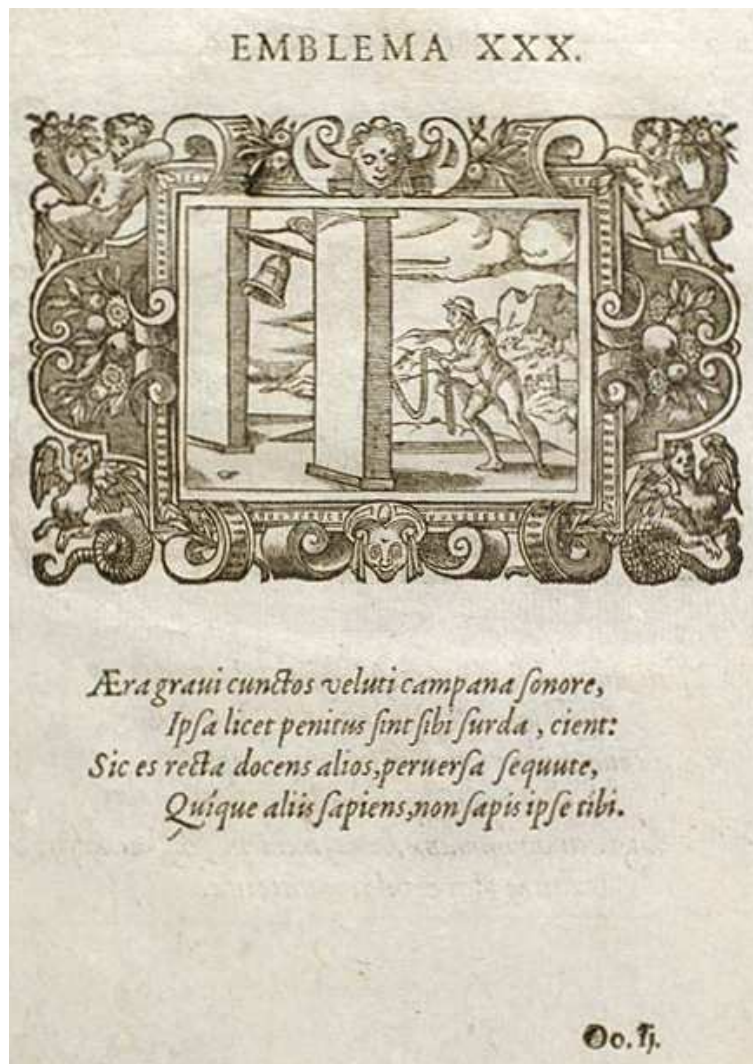 EMBLEMA XXX.
Æra graui cunctos veluti campana ſonore,
Ipſa licet penitus ſint ſibi ſurda, cient:
Sic es recta docens alios, peruerſa ſequute,
Quíque aliis ſapiens, non ſapis ipſe tibi.
Oo. ij.